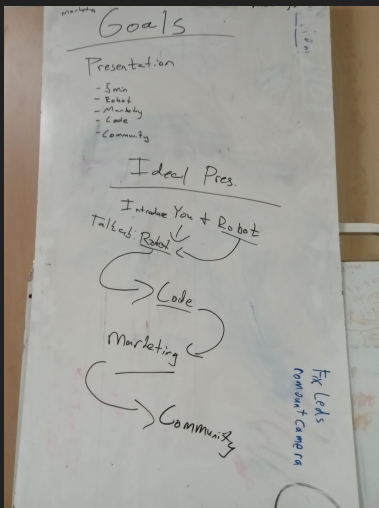 Marketa
Goals
Presentation
- 5min
- Robot
- Marketing
- Code
- Community
Ideal Pres.
Introduce You + Robot
Talk ab: Robot
Code
Marketing
Community
Fix Leds
remount camera